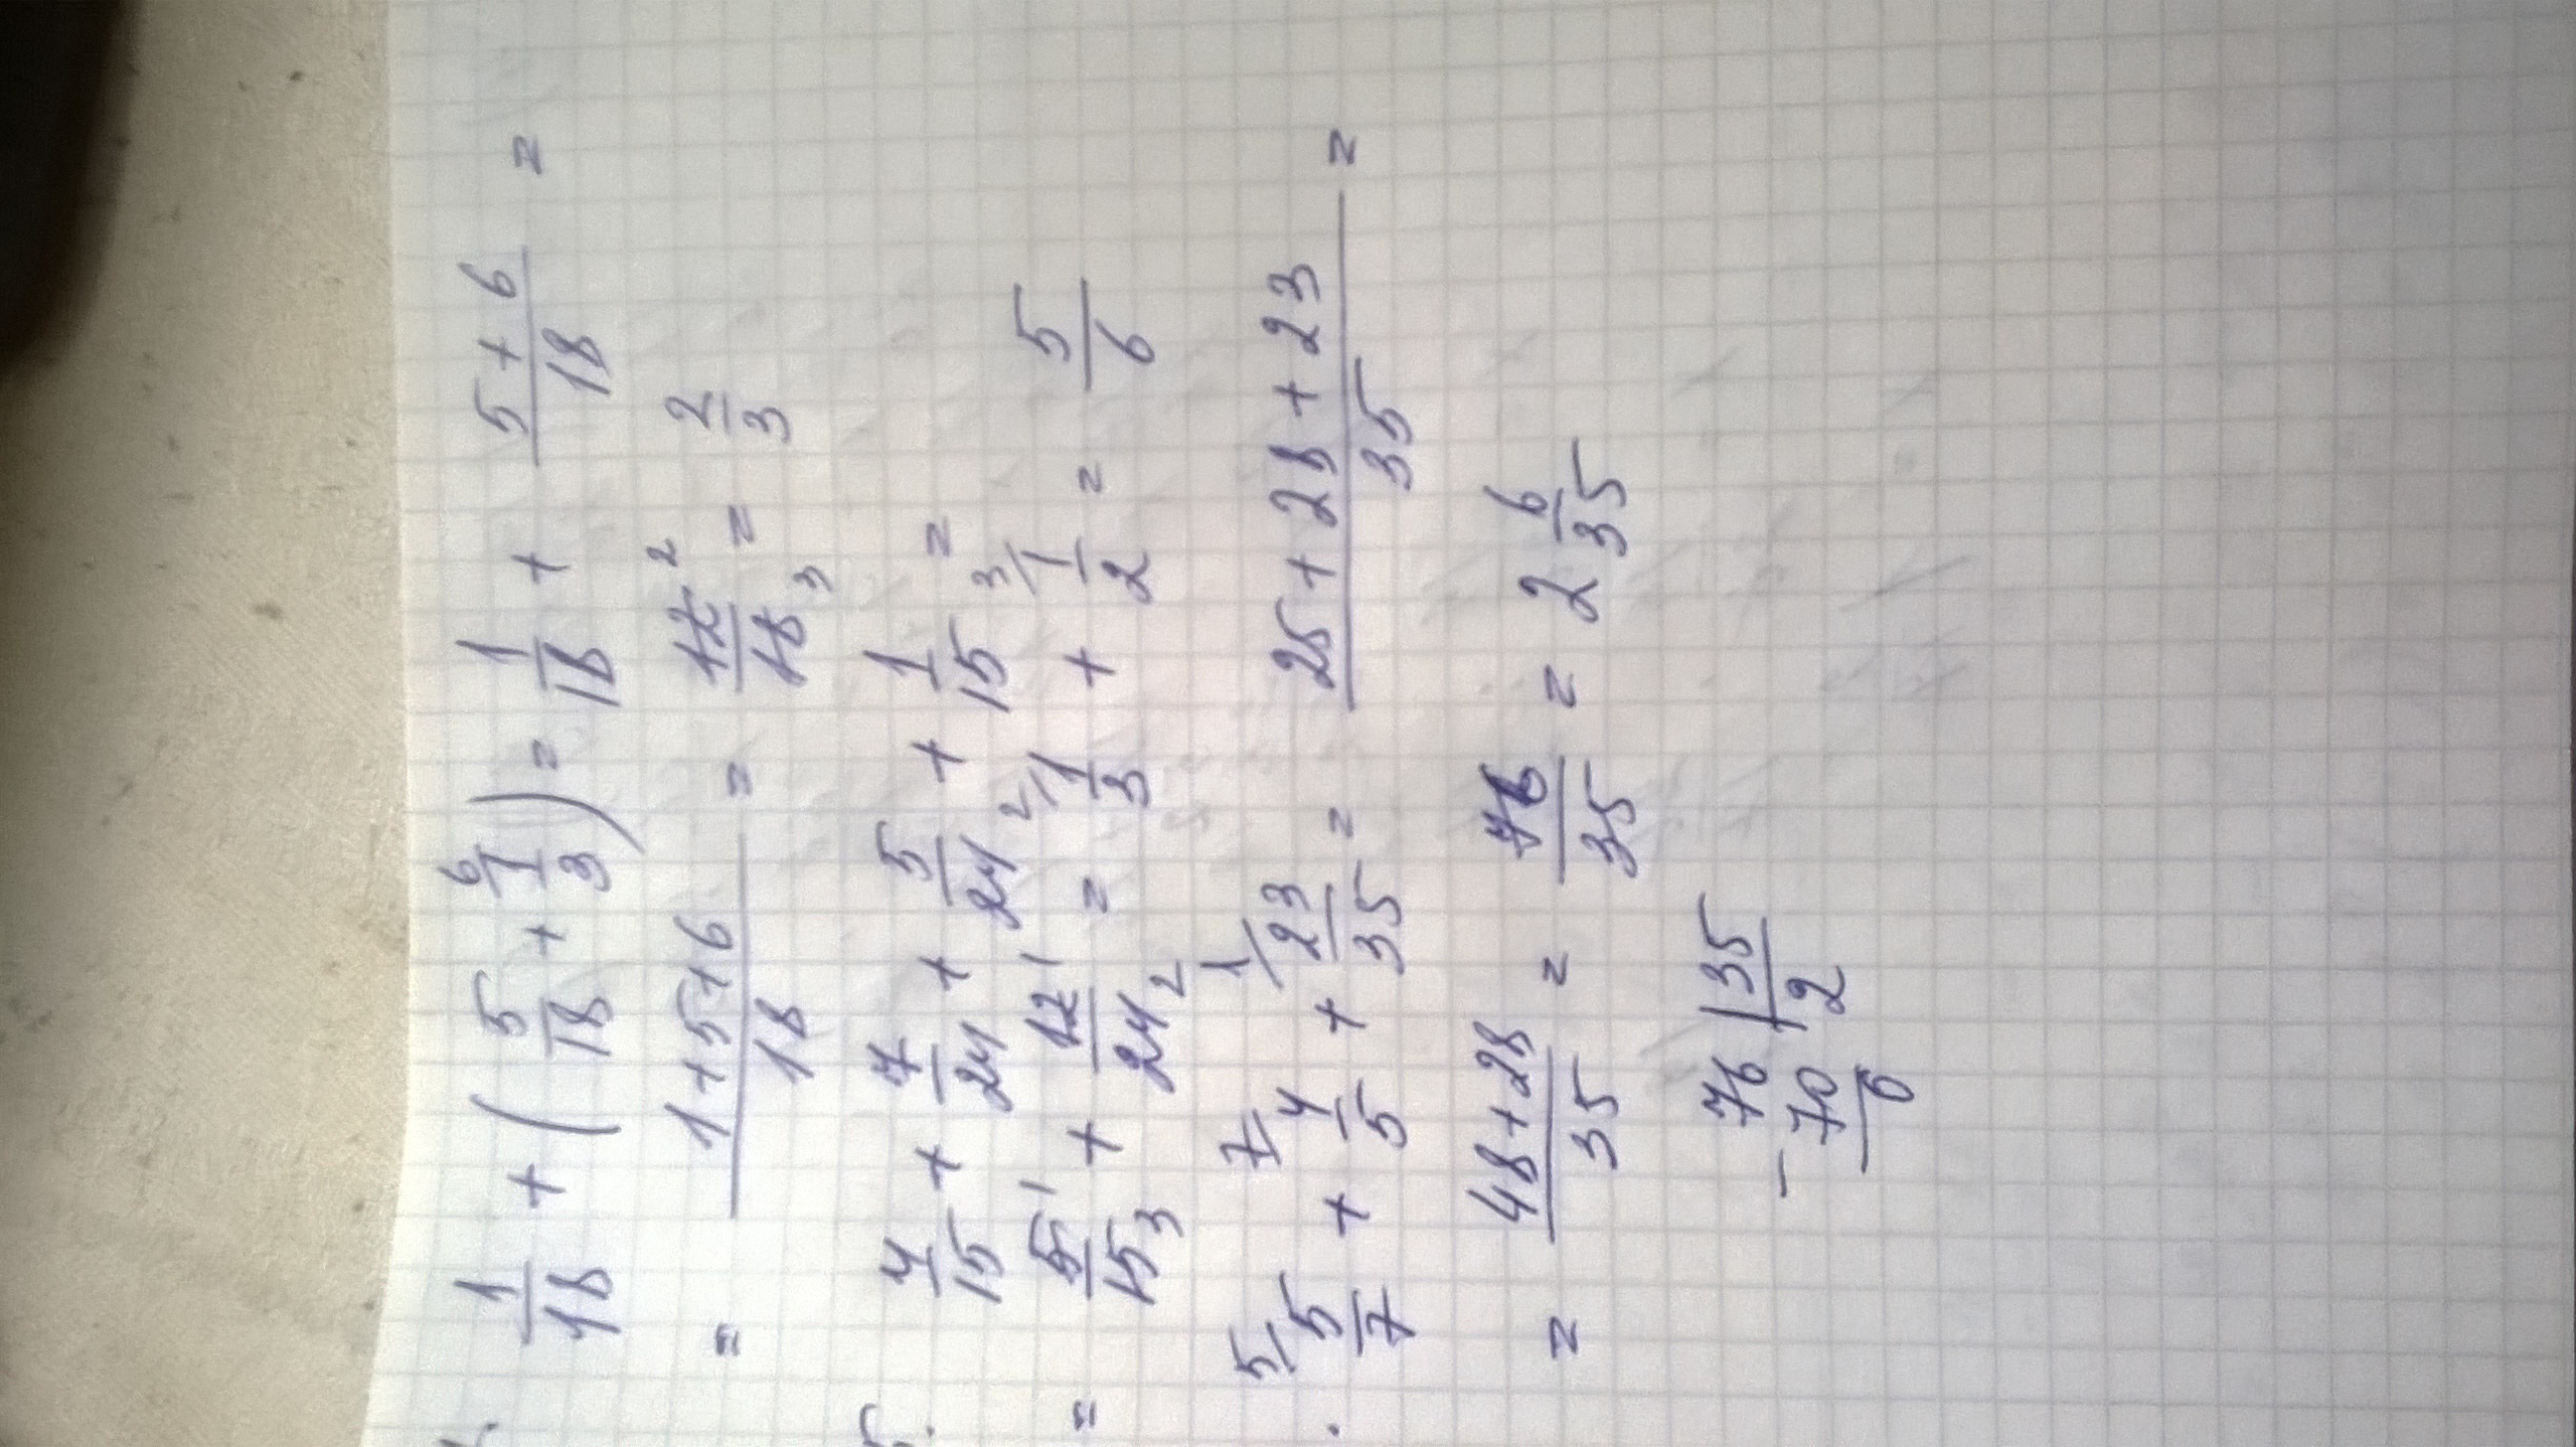 1/18 + (5/18 + 6/ 1/3) = 1/18 + (5+6)/18 =
= (1+5+6)/18 = 12²/18₃ = 2/3
5. 4/15 + 7/24 + 5/24 + 1/15 =
= 5¹/15₃ + 12¹/24₂ = 2/ 1/3 + 3/ 1/2 = 5/6
. 5/ 5/7 + 7/ 4/5 + 1/ 23/35 = (25+28+23)/35 =
= (48+28)/35 = 76/35 = 2 6/35
76 | 35
- 70 | 2
6